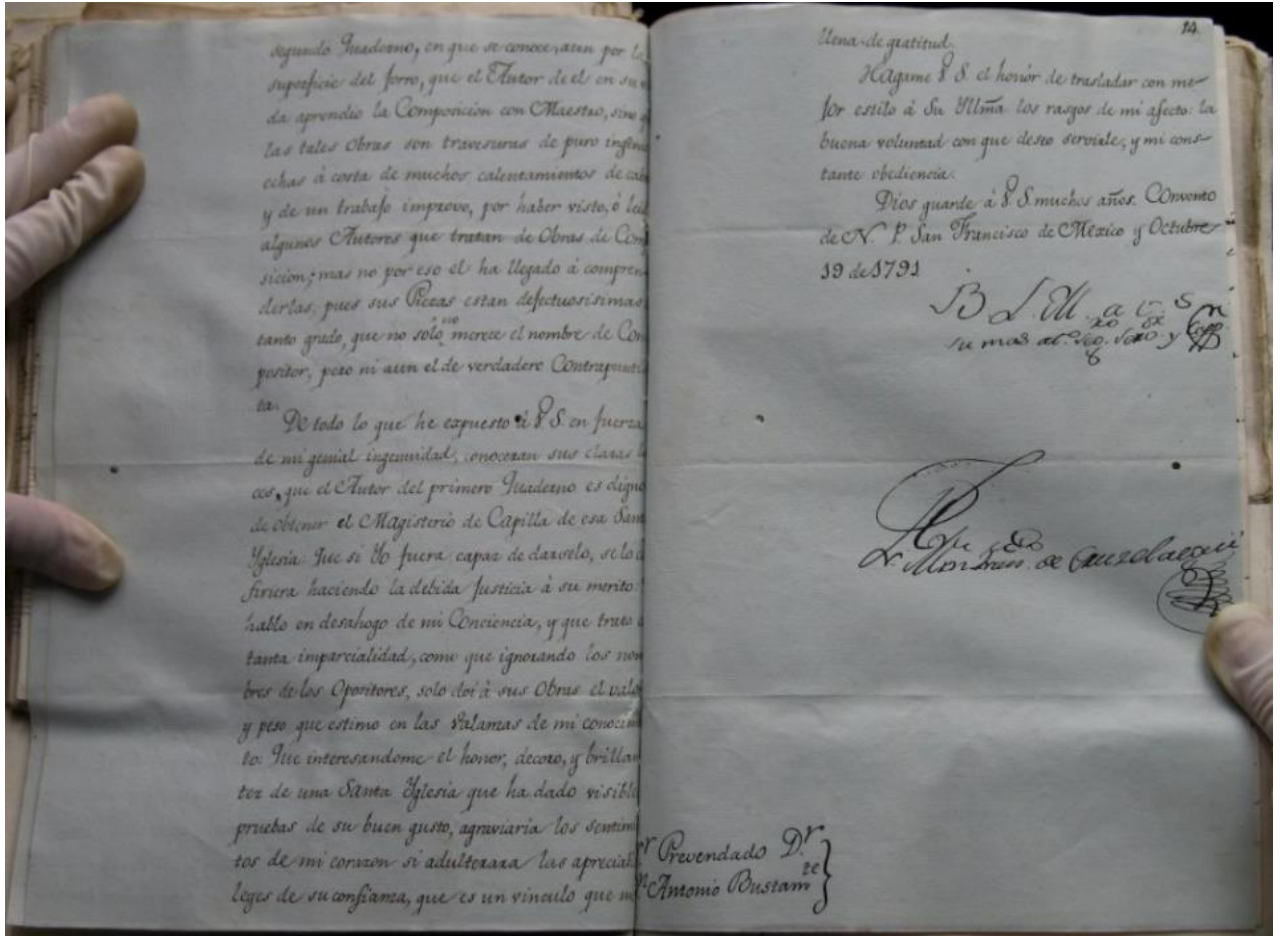 segundo Quaderno, en que se conoce, aun por la
superficie del forro, que el Autor de el en su vi
da aprendio la Composicion con Maestro, sino q
las tales Obras son travesuras de puro ingenio
echas á costa de muchos calentamientos de cabe
y de un trabajo improvo, por haver visto, ó leid
algunos Autores que tratan de Obras de Com
sicion; mas no por eso él ha llegado á compren
derlas, pues sus Piezas estan defectuosisimas
tanto grado, que no solo no merece el nombre de Com
positor, pero ni aun el de verdadero Contrapunti
ta.
De todo lo que he expuesto á V. S. en fuerza
de mi genial ingenuidad, conoceran sus claras lu
ces, que el Autor del primero Quaderno es digno
de obtener el Magisterio de Capilla de esa Sant
Yglesia. Que si Yo fuera capaz de darselo, se lo c
firiera haciendo la debida Justicia á su merito:
hablo en desahogo de mi Conciencia, y que trato c
tanta imparcialidad, como que ignorando los nom
bres de los Opositores, solo doi á sus Obras el valor
y peso que estimo en las Valanzas de mi conocim
to. Que interesandome el honor, decoro, y brillan
tez de una Santa Yglesia que ha dado visible
pruebas de su buen gusto, agraviaria los sentimi
tos de mi corazon si adulterara las apreciab
leyes de su confianza, que es un vinculo que me
14.
llena de gratitud.
Hagame V. S. el honor de trasladar con me-
jor estilo á Su Yllma los rasgos de mi afecto: la
buena voluntad con que deseo servirle, y mi cons-
tante obediencia.
Dios guarde á V. S. muchos años. Convento
de N. P. San Francisco de Mexico y Octubre
19 de 1791
B L M a
su mas at.º y Cap
Fr. Martin de Cruzelaegui
r Prevendado D.r
n Antonio Bustam.te